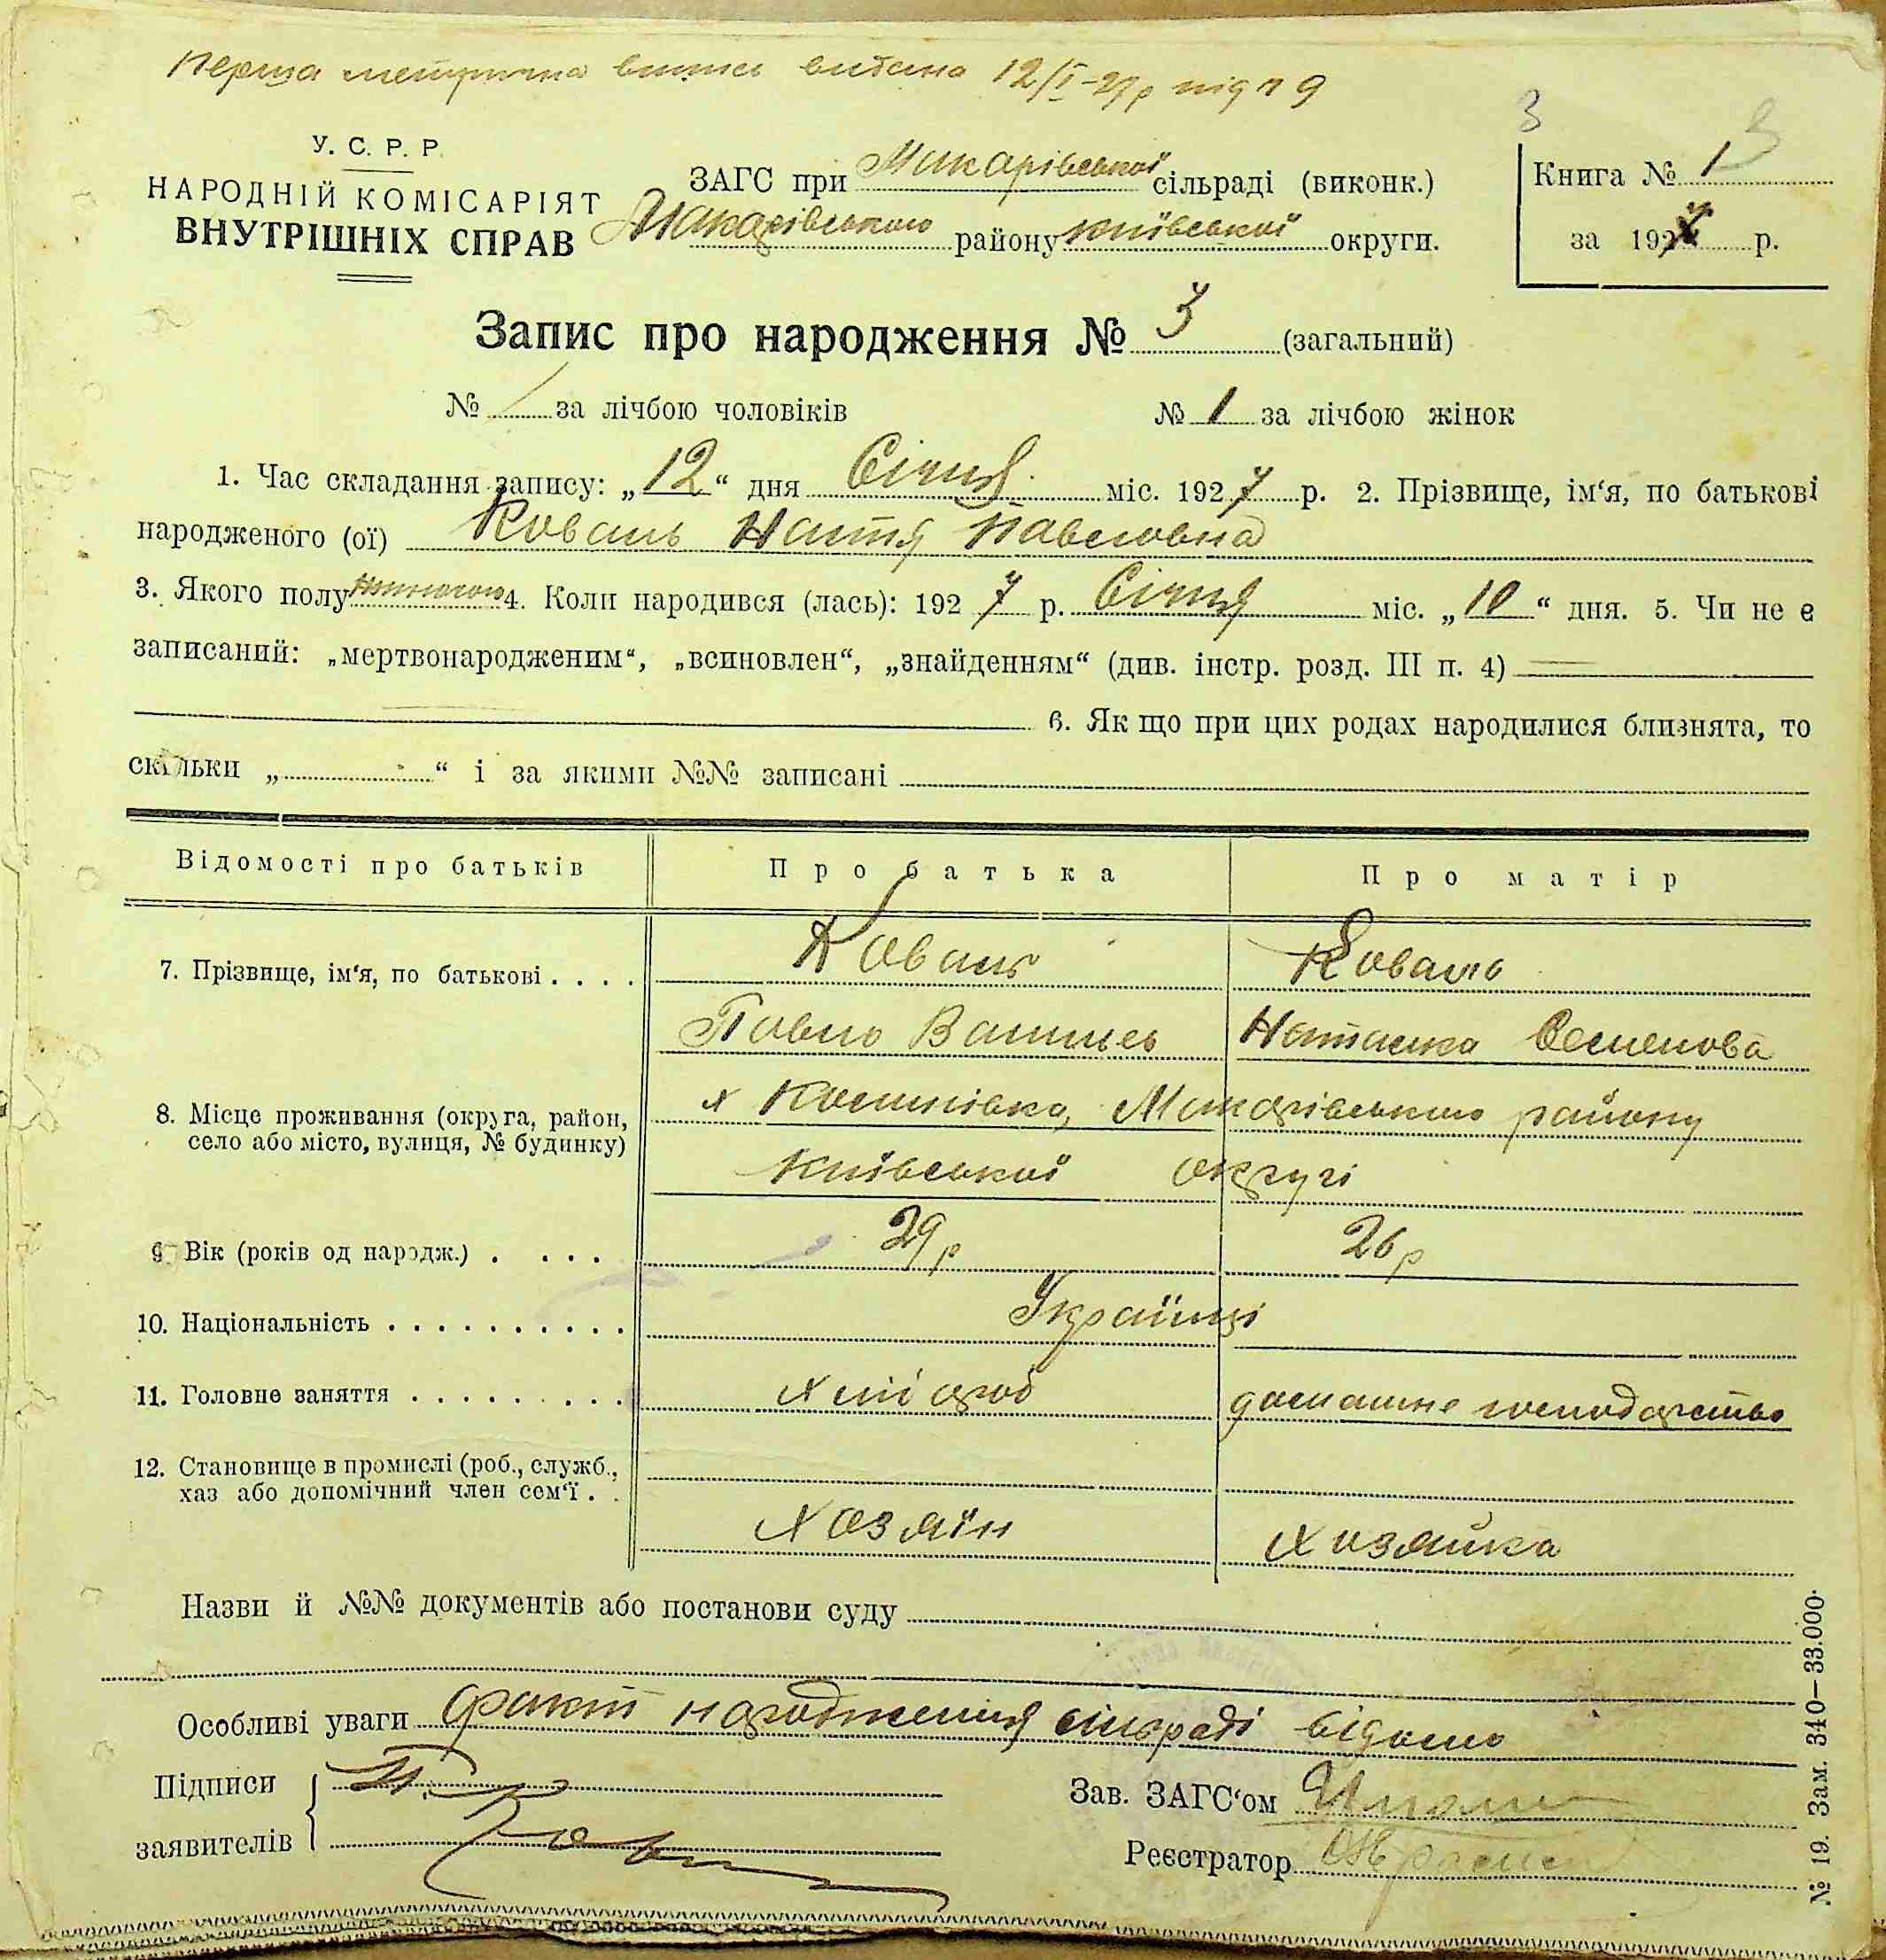 Перша метрична випись видана 12/I-27р під № 9
3
У. С. Р. Р.
НАРОДНІЙ КОМІСАРІЯТ
ВНУТРІШНІХ СПРАВ
ЗАГС при Макарівської сільраді (виконк.)
Макарівського району Київської округи.
Книга № 1
за 1927 р.
Запис про народження № 3 (загальний)
№ за лічбою чоловіків № 1 за лічбою жінок
1. Час складання запису: „12“ дня Січня міс. 1927 р. 2. Прізвище, ім‘я, по батькові
народженого (ої) Коваль Настя Павловна
3. Якого полу жіночого 4. Коли народився (лась): 1927 р. Січня міс. „10“ дня. 5. Чи не є
записаний: „мертвонародженим“, „всиновлен“, „знайденням“ (див. інстр. розд. III п. 4)
6. Як що при цих родах народилися близнята, то
скільки „ “ і за якими №№ записані
Відомості про батьків Про батька Про матір
7. Прізвище, ім‘я, по батькові . . . . Коваль Коваль
Павло Васильев Наталка Семенова
8. Місце проживання (округа, район, х Макарівського району
село або місто, вулиця, № будинку)
Київської округі
9. Вік (років од народж.) . . . . 29р 26р
10. Національність . . . . . . . . . . Українці
11. Головне заняття . . . . . . . . . хлібороб домашне господарство
12. Становище в промислі (роб., служб.,
хаз або допомічний член сем‘ї . .
Хозяїн Хозяйка
Назви й №№ документів або постанови суду
Особливі уваги факт народження сільраді відомо
Підписи
заявителів
Зав. ЗАГС‘ом
Реєстратор
№ 19. Зам. 340—33.000.